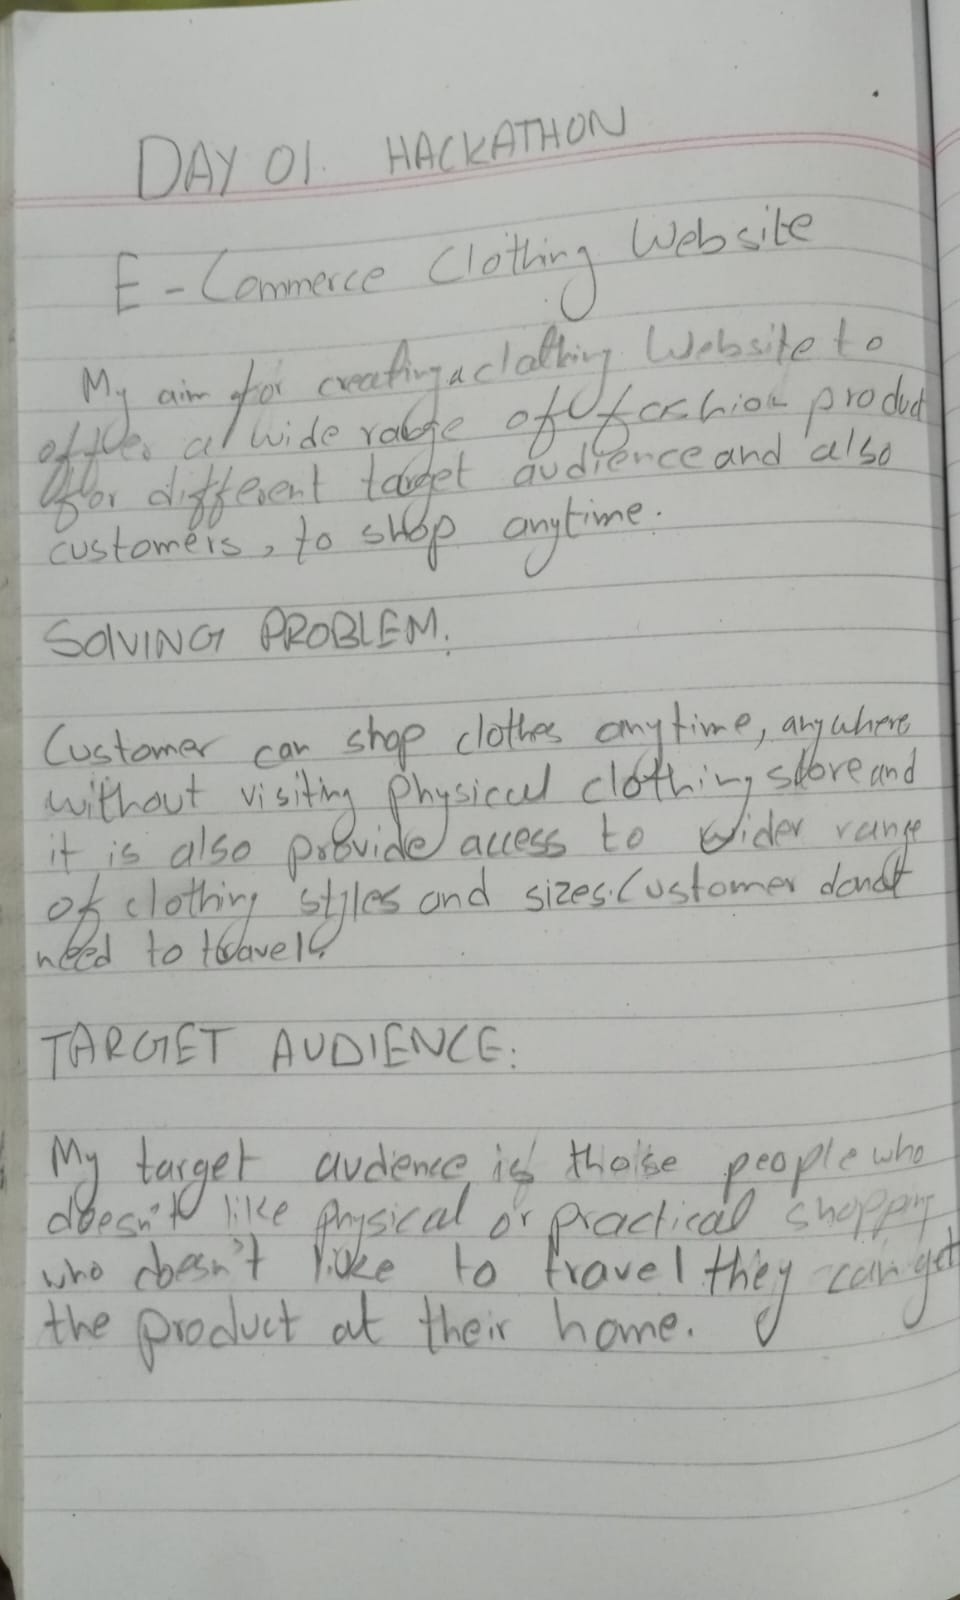 DAY 01. HACKATHON
E - Commerce Clothing Website
My aim for creating a clothing Website to
offer a wide range of fashion product
for different target audience and also
customers, to shop anytime.
SOLVING PROBLEM.
Customer can shop clothes anytime, anywhere
without visiting Physical clothing store and
it is also provide access to wider range
of clothing styles and sizes. Customer donot
need to travel.
TARGET AUDIENCE:
My target audience is those people who
doesn't like physical or practical shopping
who doesn't like to travel they can get
the product at their home.